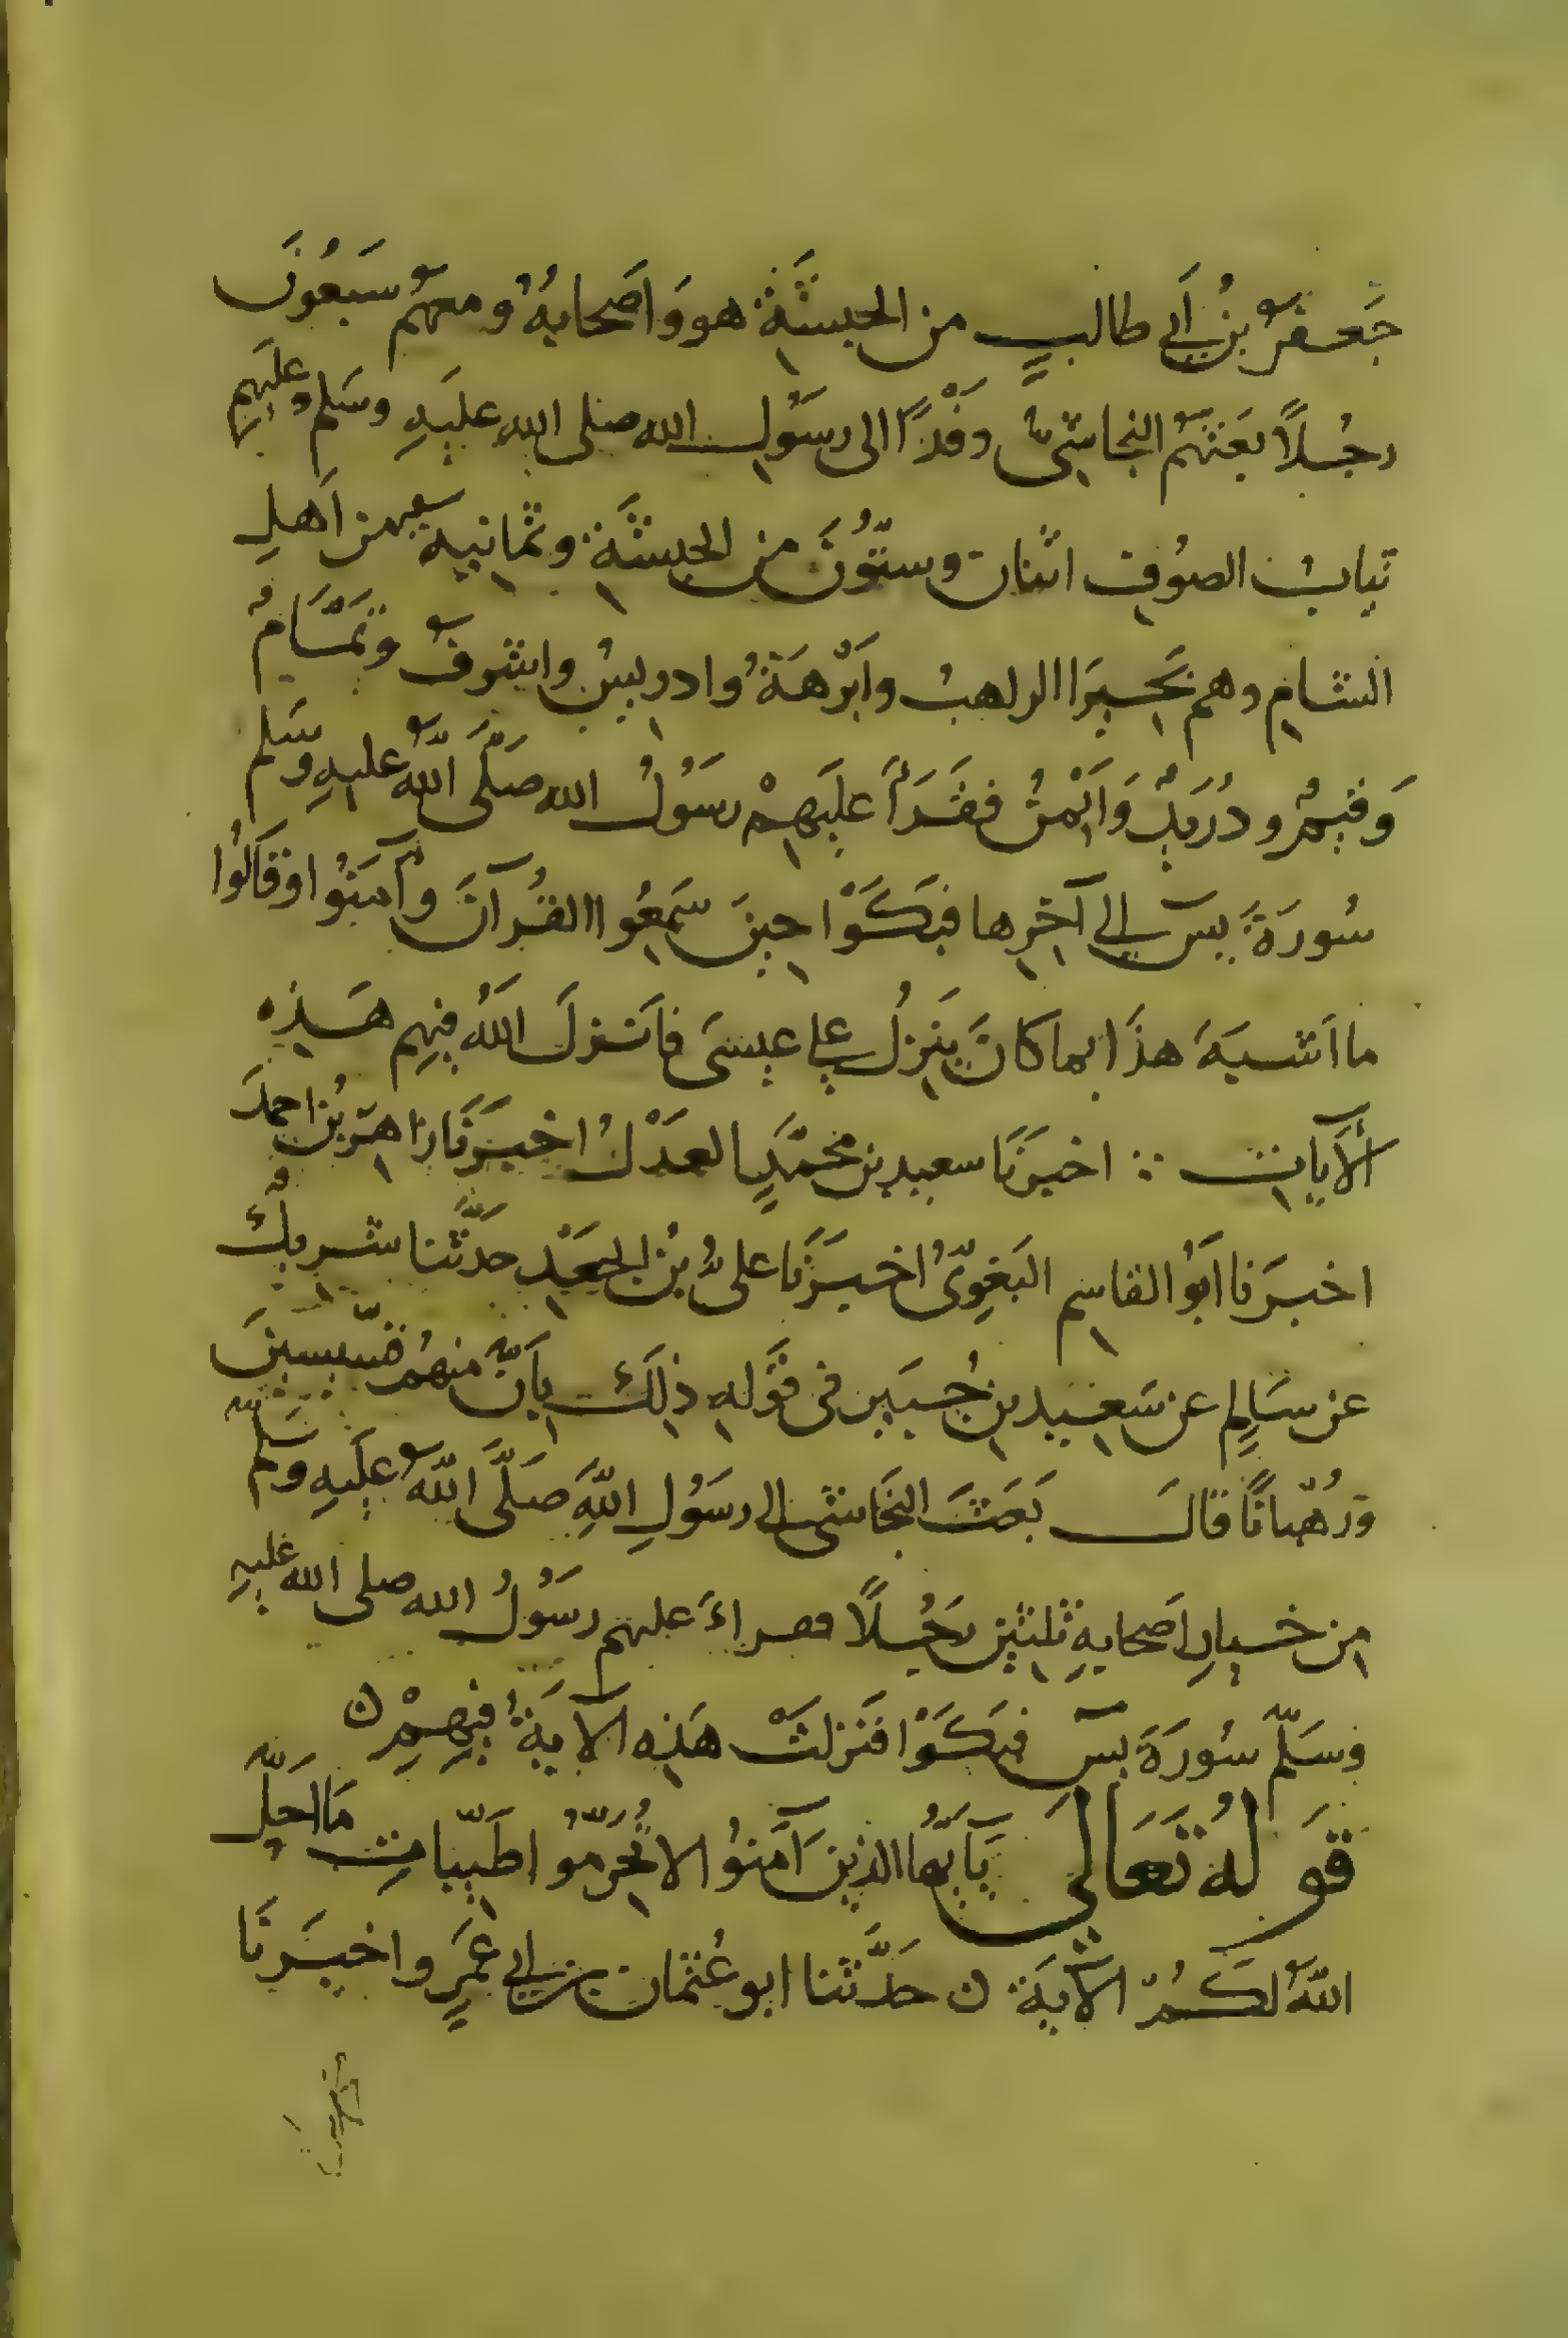 جَعفرُ بنُ أَبي طالبٍ من الحبشَةِ هو وَاَصحابهُ ومعهُم سَبعُونَ
رجُلاً بعَثهُم النجاشيُّ وفْدًا الى رسَوُلِ الله صلى الله علَيهِ وسَلم وعلَيهِم
ثيابُ الصوُفِ اثنان وستّوُنَ من الحبشَة وثمانية من اَهلِ
الشامِ وهم بَحيرَا الراهبُ واَبْرَهَةُ وادريسُ واشرفُ وتمَّامُ
وَقيمٌ ودُرَيدٌ وَاَيْمنُ فقَرَأَ علَيهِمْ رسَوُلُ الله صَلَّى اللهُ عليهِ وسَلم
سُورَةَ يسَ الى آخرِها فبَكَوْا حينَ سَمعُوا القُرآنَ وآمنَوُا وقَالُوا
ما اَشبهَ هذَا بما كانَ ينَزلُ على عيسَى فاَنزلَ اللهُ فيهِم هَذِه
الآيات ∴ اخبرَنَا سعيد بن محمّدٍ العَدْلُ اخبَرنَا زاهرُ بنُ احمدَ
اخبرَنا اَبوُ القاسِم البَغوِىُّ اخبَرَنَا علىُّ بنُ الجعَدْ حدَّثنا شريكٌ
عن سَالِمٍ عن سَعيد بن جُبَير فى قَوَلهِ ذلَكَ بِاَنَّ منهُم قسّيسينَ
وَرُهْبانًا قالَ بَعَثَ النجَاشى الى رسَوُلِ اللهِ صَلَّى اللهُ علَيهِ وسَلَّم
من خيارِ اَصحابهِ ثلثينَ رَجُلاً فقراءَ عليهم رسَوُلُ الله صلى الله علَيهِ
وَسَلّم سُورَةَ يسَ فبَكَوْا فنَزلتْ هَذِه الآيَةُ فيهِمْ ن
قَولهُ تعَالى يَآ اَيّهُا الذينَ آمَنوُا لا تُحَرّمُوا طَيّبَاتِ مَا اَحَلَّ
اللهُ لَكُمْ الآيَةَ ن حَدَّثنا ابو عُثمان بن ابى عَمرٍو اخبَرنَا